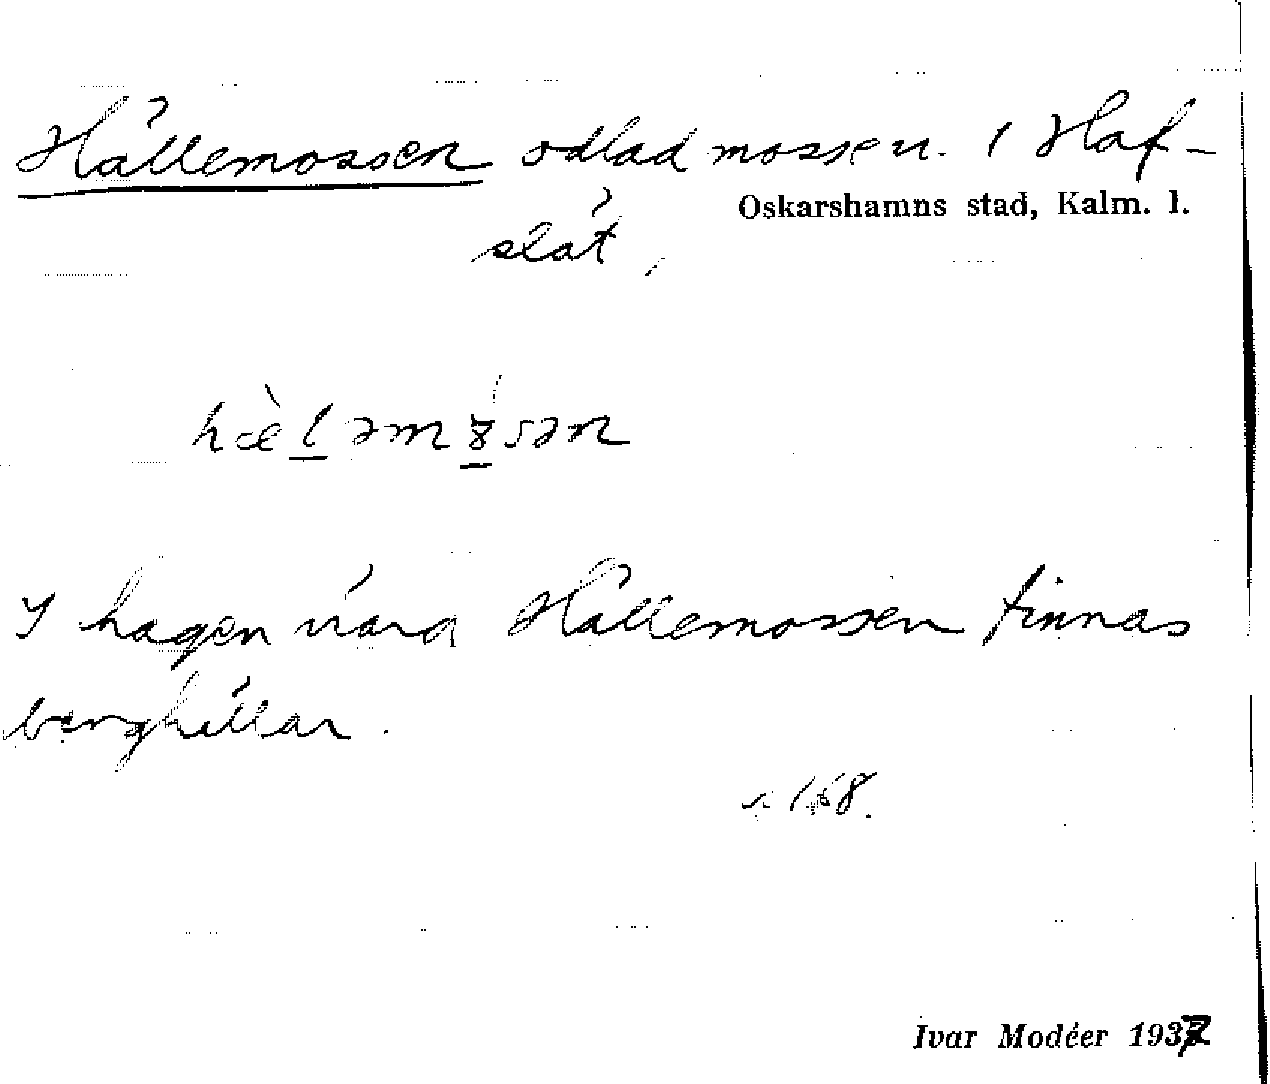 Hällemossen odlad mossen. i Haf-
Oskarshamns stad, Kalm. l.
slät,
I hagen nära Hällemossen finnas
berghällar.
s. 168.
Ivar Modéer 1937